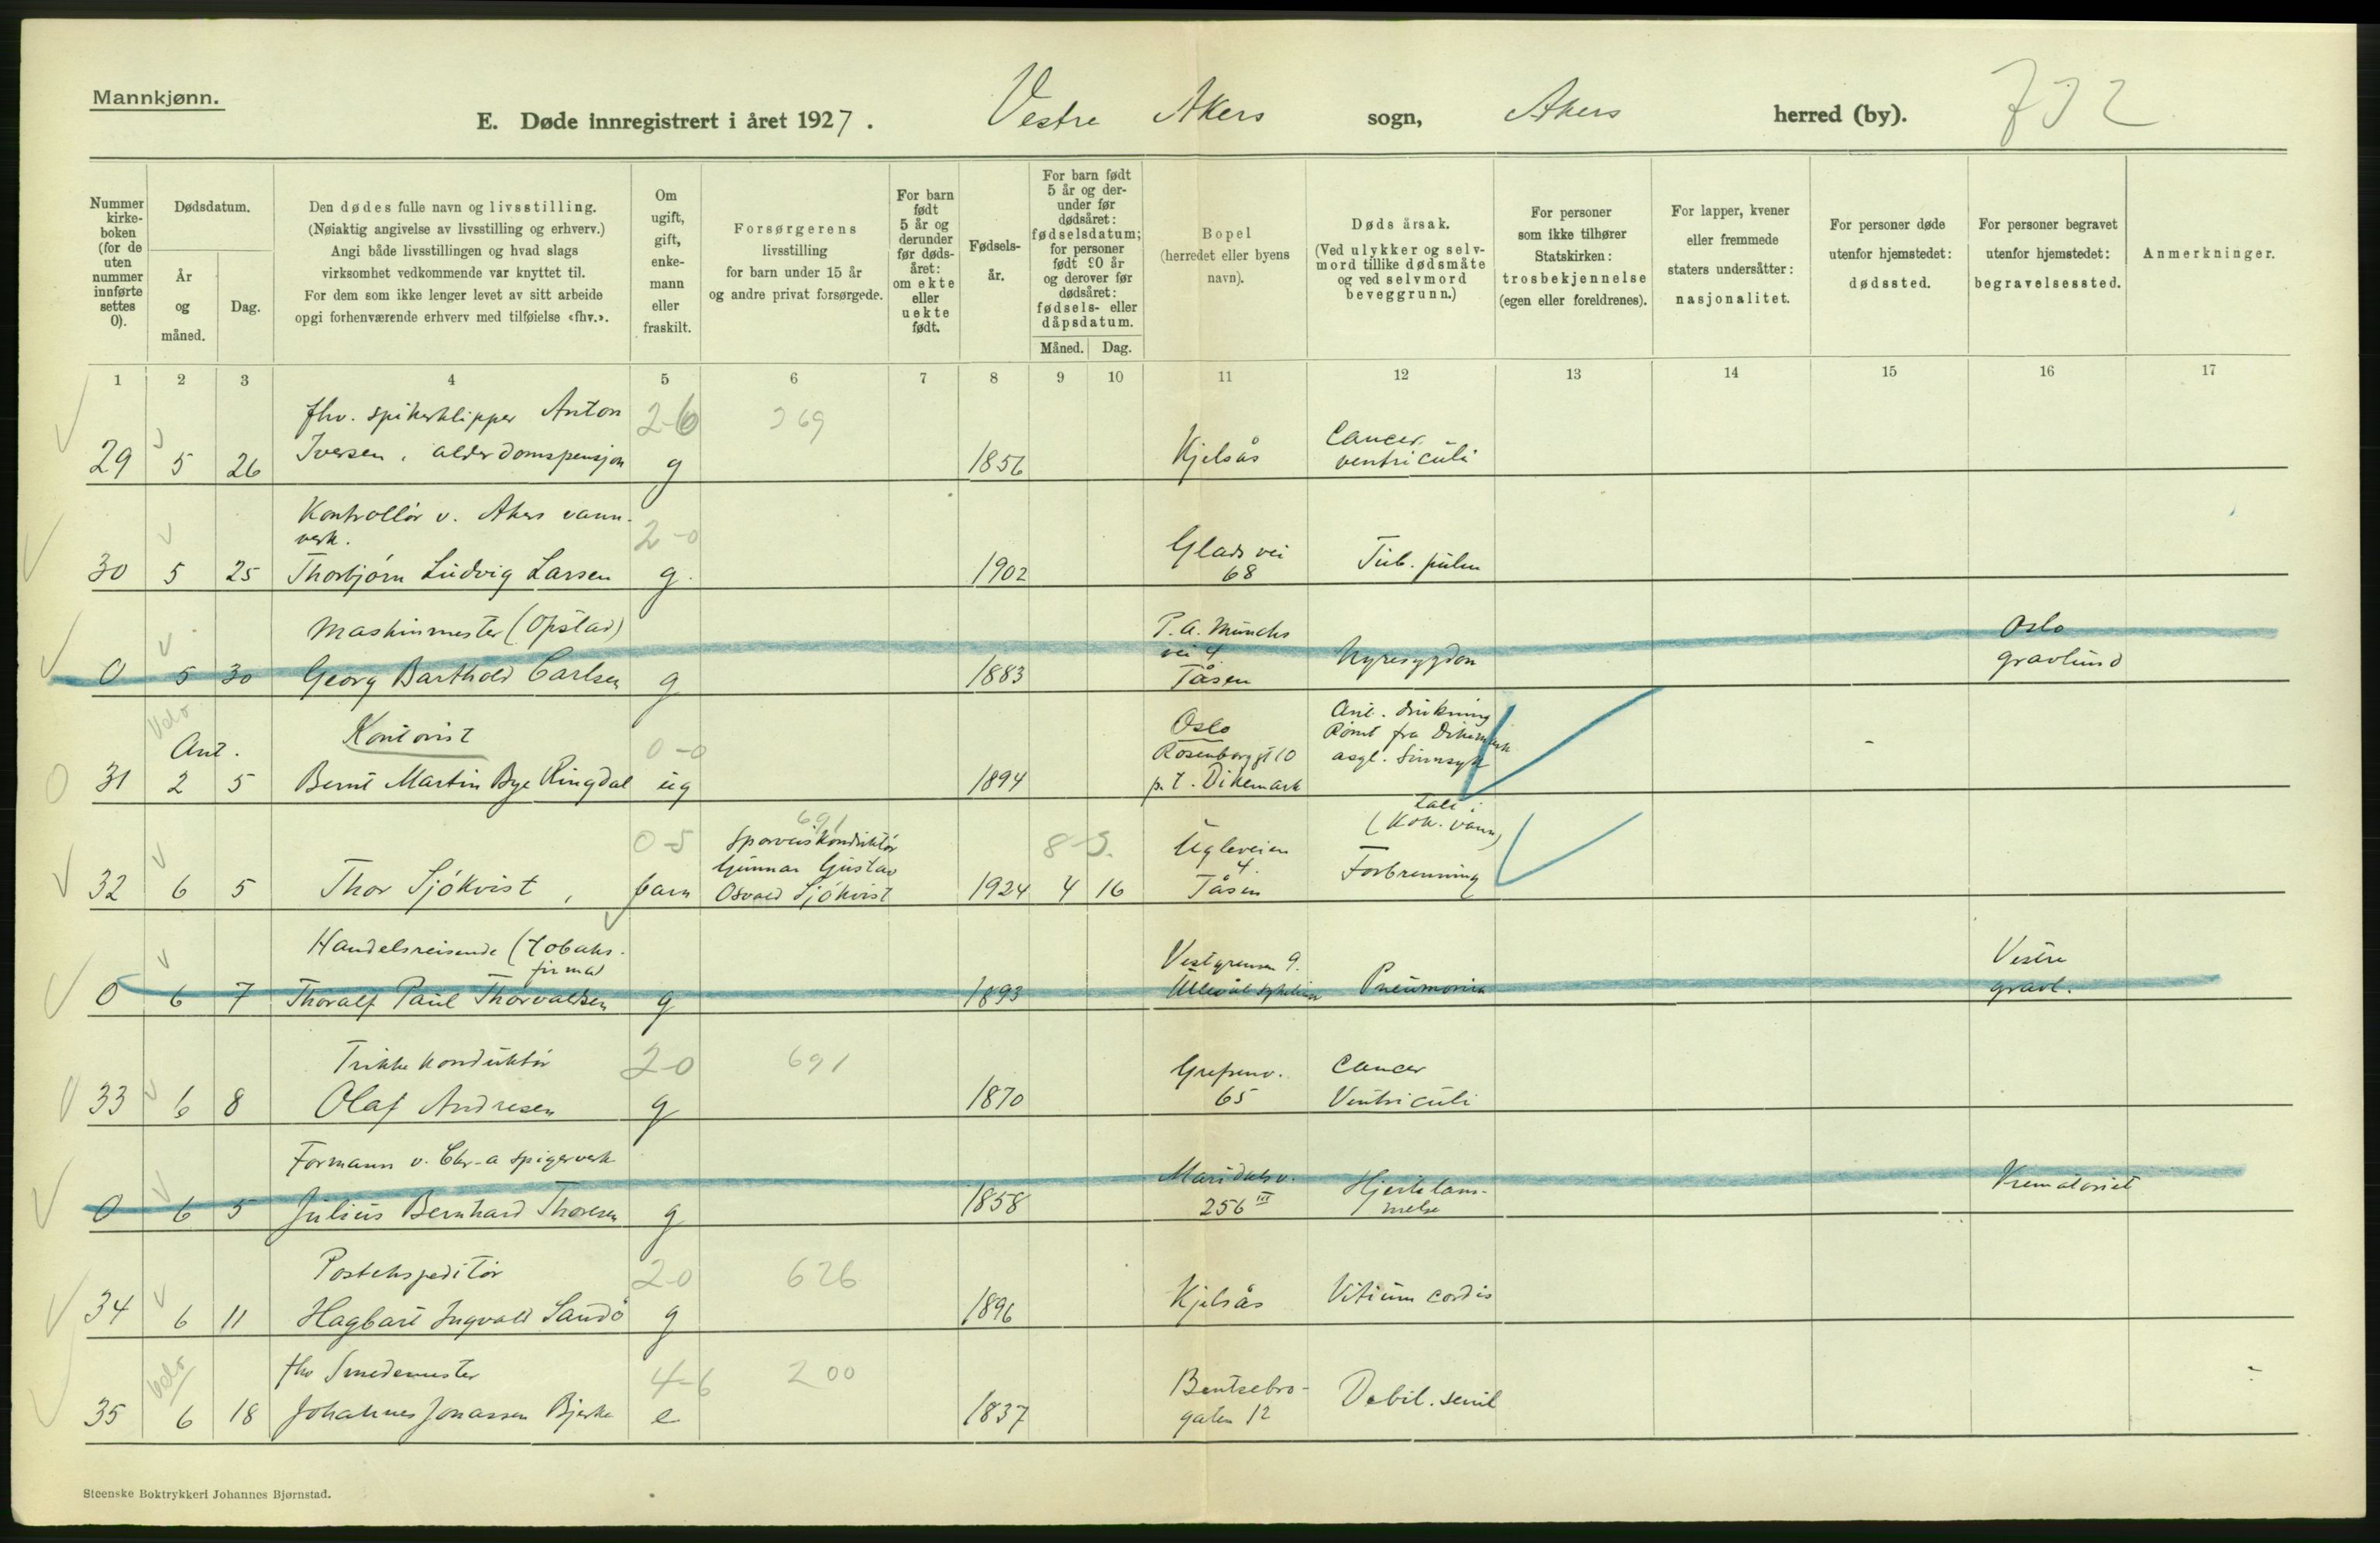 Mannkjønn.
E. Døde innregistrert i året 1927. Vestre Akers sogn, Akers herred (by). 732
Nummer kirke-boken (for de uten nummer innførte settes 0).
Dødsdatum.
År og måned.
Dag.
Den dødes fulle navn og livsstilling.
(Nøiaktig angivelse av livsstilling og erhverv.)
Angi både livsstillingen og hvad slags
virksomhet vedkommende var knyttet til.
For dem som ikke lenger levet av sitt arbeide
opgi forhenværende erhverv med tilføielse «fhv.».
Om ugift, gift, enke-mann eller fraskilt.
Forsørgerens
livsstilling
for barn under 15 år
og andre privat forsørgede.
For barn født 5 år og derunder før døds-året: om ekte eller uekte født.
Fødsels-år.
For barn født 5 år og der-under før dødsåret: fødselsdatum; for personer født 90 år og derover før dødsåret: fødsels- eller dåpsdatum.
Måned. Dag.
Bopel
(herredet eller byens
navn).
Døds årsak.
(Ved ulykker og selv-
mord tillike dødsmåte
og ved selvmord
beveggrunn.)
For personer
som ikke tilhører
Statskirken:
trosbekjennelse
(egen eller foreldrenes).
For lapper, kvener
eller fremmede
staters undersåtter:
nasjonalitet.
For personer døde
utenfor hjemstedet:
dødssted.
For personer begravet
utenfor hjemstedet:
begravelsessted.
Anmerkninger.
1 2 3 4 5 6 7 8 9 10 11 12 13 14 15 16 17
fhv. spikerklipper Anton 2-6 369
29 5 26 Iversen, alderdomspensjon g 1856 Kjelsås Cancer ventriculi
Kontrollør v. Akers vann-
verk. 2-0
30 5 25 Thorbjørn Ludvig Larsen g. 1902 Glads vei 68 Tub. pulm
Maskinmester (Opstad) P. A. Munchs vei 4 Oslo
0 5 30 Georg Barthold Carlsen g 1883 Tåsen Nyresygdom gravlund
Ant. Kontorist 0-0 Oslo Ant. drukning
Rosenborggt 10 Rømt fra Dikemark
31 2 5 Bernt Martin Bye Ringdal ug 1894 p.t. Dikemark asyl. Sinnsyk
691 (Kok. vann)
0-5 Sporveiskonduktør Ugleveien 4
Gunnar Gustav
32 6 5 Thor Sjökvist, barn Osvald Sjökvist 1924 4 16 Tåsen Forbrenning
Handelsreisende (tobaks- firma) Vestgrensen 9. Vestre
0 6 7 Thoralf Paul Thorvaldsen g 1893 Ullevål sykehus Pneumonia gravl.
Trikkekonduktør 2-0 691 Grefsenv. Cancer
33 6 8 Olaf Andresen g 1870 65 Ventriculi
Formann v. Chr-a spigerverk Maridalsv. Hjertelam- Krematoriet
0 6 5 Julius Bernhard Thoresen g 1858 256 III melse
Postekspeditør 2-0 626
34 6 11 Hagbart Ingvald Sandö g 1896 Kjelsås Vitium cordis
fhv Smedemester 4-6 200 Bentsebro-
35 6 18 Johannes Jonassen Bjerke e 1837 gaten 12 Debil. senil
Steenske Boktrykkeri Johannes Bjørnstad.